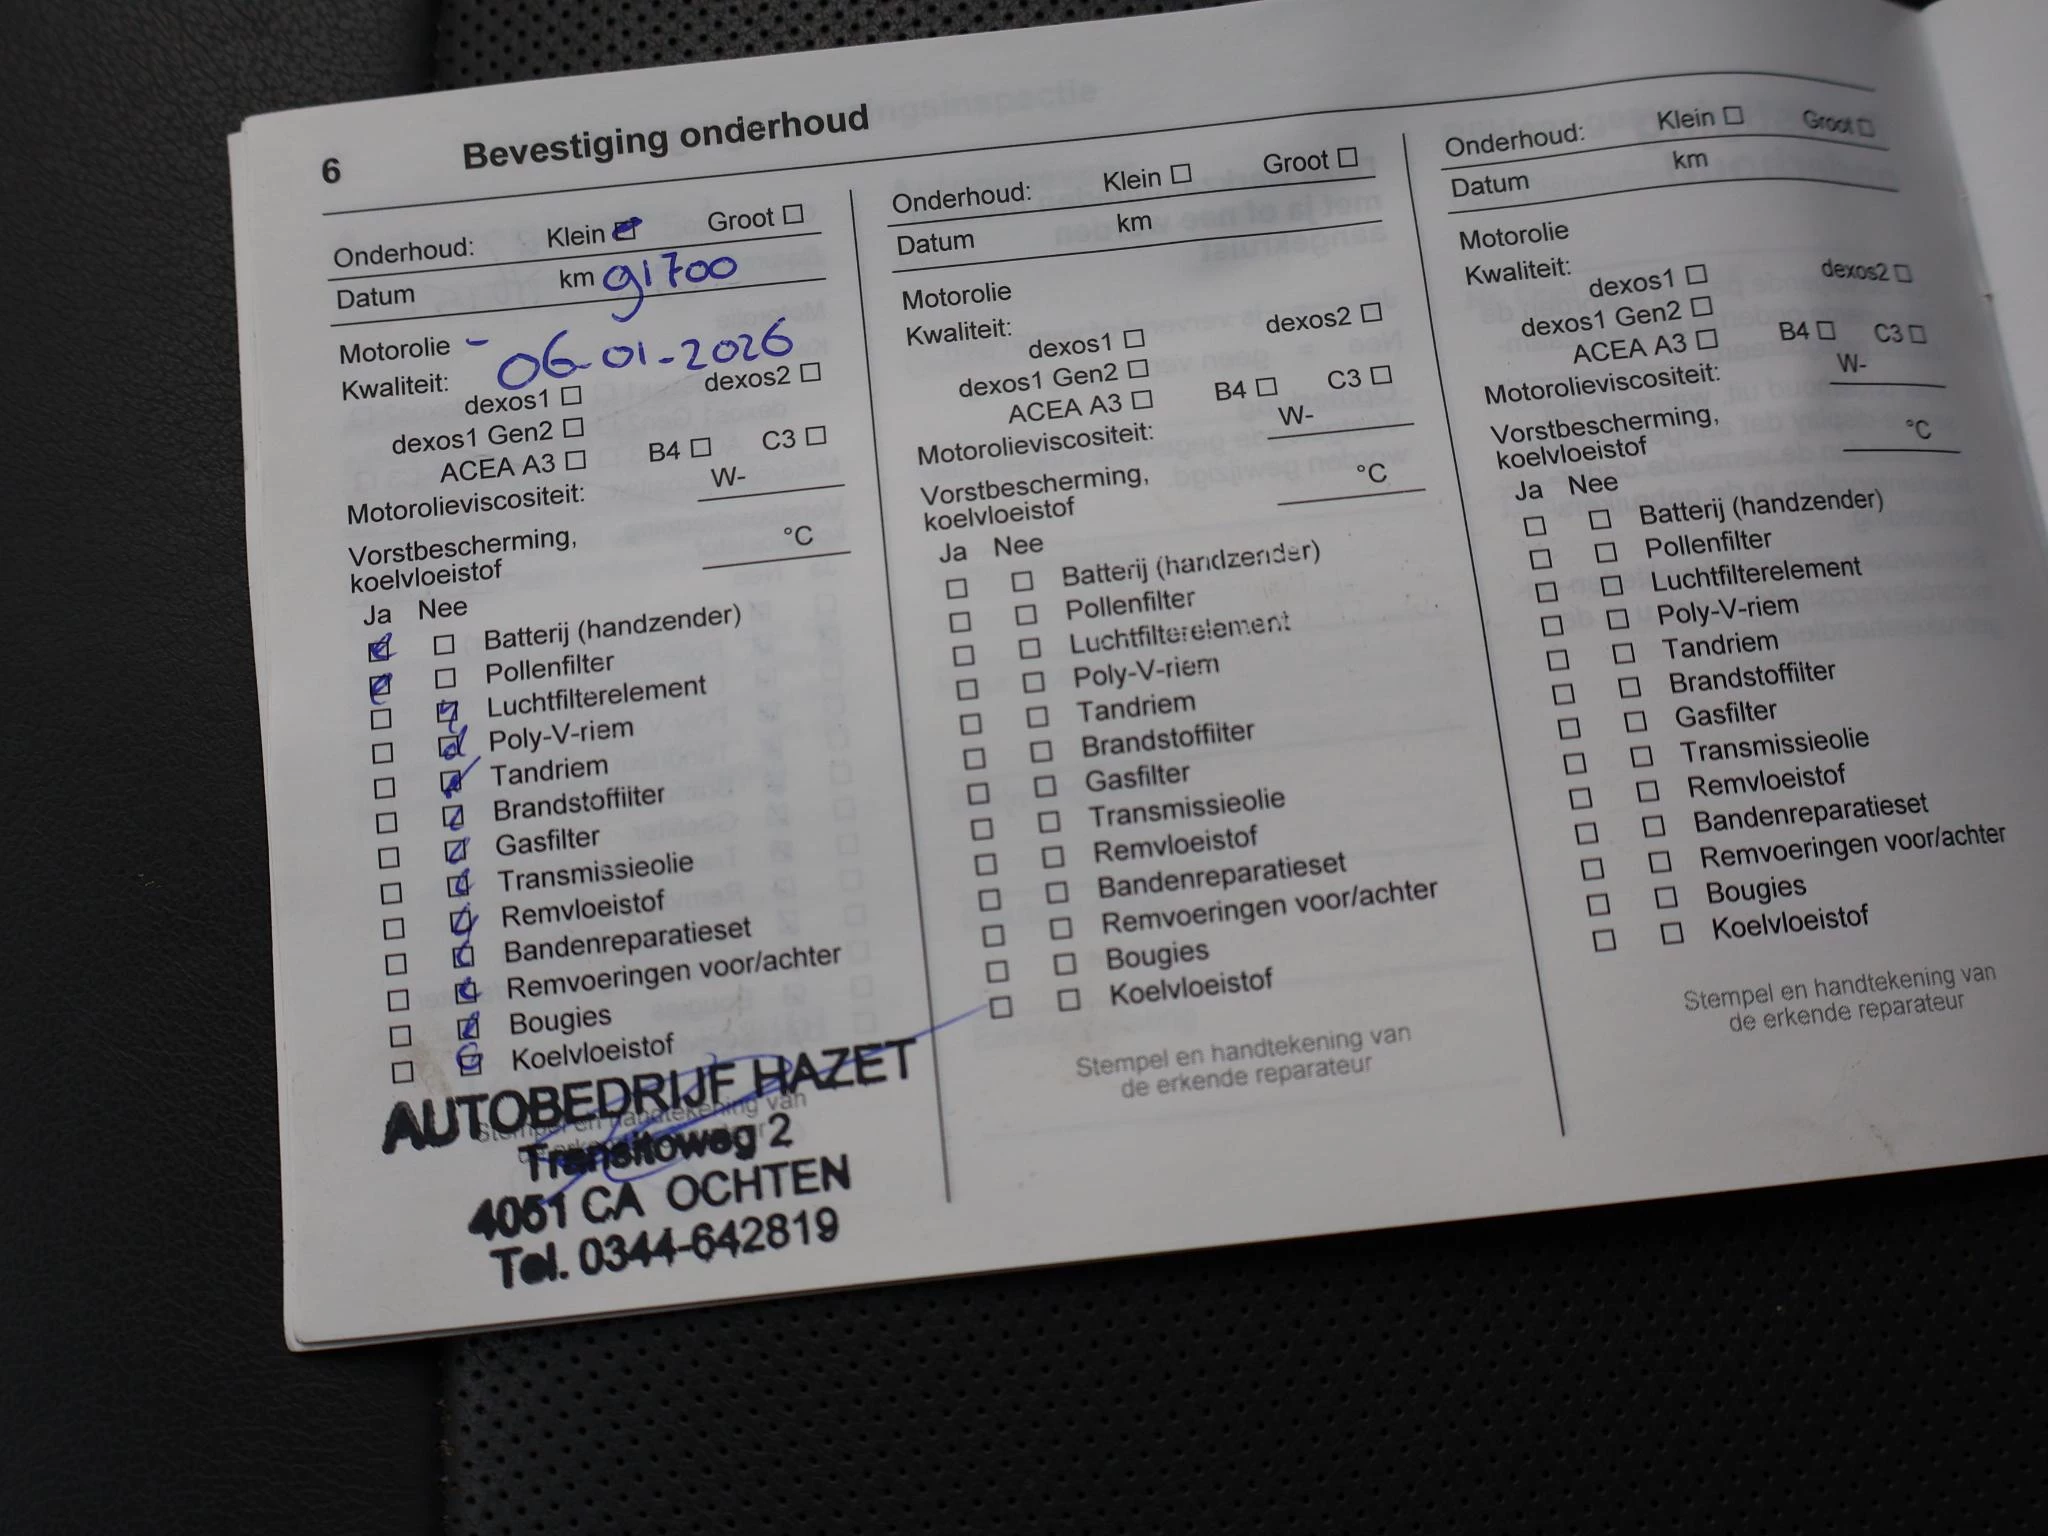 6 Bevestiging onderhoud
Onderhoud: Klein Groot
Datum km 91700
Motorolie - 06-01-2026
Kwaliteit: dexos1 dexos2
dexos1 Gen2
ACEA A3 B4 C3
Motorolieviscositeit: W-
Vorstbescherming,
koelvloeistof °C
Ja Nee
Batterij (handzender)
Pollenfilter
Luchtfilterelement
Poly-V-riem
Tandriem
Brandstoffilter
Gasfilter
Transmissieolie
Remvloeistof
Bandenreparatieset
Remvoeringen voor/achter
Bougies
Koelvloeistof
Stempel en handtekening van
AUTOBEDRIJF HAZET
Transitoweg 2
4051 CA OCHTEN
Tel. 0344-642819
Onderhoud: Klein Groot
Datum km
Motorolie
Kwaliteit: dexos1 dexos2
dexos1 Gen2
ACEA A3 B4 C3
Motorolieviscositeit: W-
Vorstbescherming,
koelvloeistof °C
Ja Nee
Batterij (handzender)
Pollenfilter
Luchtfilterelement
Poly-V-riem
Tandriem
Brandstoffilter
Gasfilter
Transmissieolie
Remvloeistof
Bandenreparatieset
Remvoeringen voor/achter
Bougies
Koelvloeistof
Stempel en handtekening van
de erkende reparateur
Onderhoud: Klein Groot
Datum km
Motorolie
Kwaliteit: dexos1 dexos2
dexos1 Gen2
ACEA A3 B4 C3
Motorolieviscositeit: W-
Vorstbescherming,
koelvloeistof °C
Ja Nee
Batterij (handzender)
Pollenfilter
Luchtfilterelement
Poly-V-riem
Tandriem
Brandstoffilter
Gasfilter
Transmissieolie
Remvloeistof
Bandenreparatieset
Remvoeringen voor/achter
Bougies
Koelvloeistof
Stempel en handtekening van
de erkende reparateur